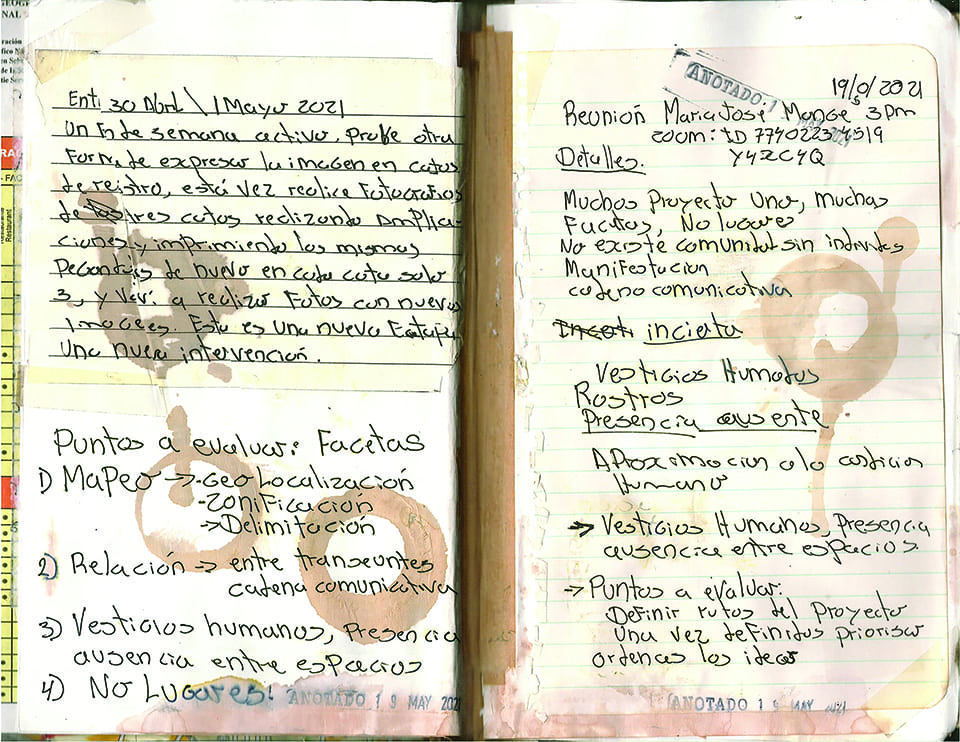 Ent. 30 Abril \ 1 Mayo 2021
Un fin de semana activo. Probe otra
Forma de expresar la imagen en catas
de registro, está vez realice Fotografias
de tres catas realizando Amplica
ciones y imprimiendo las mismas
de nuevo en cada cata solo
3, y Ver. a realizar Fotos con nuevas
Imagees. Esta es una nueva
Una nueva intervención.
Puntos a evaluar: Facetas
1) Mapeo → -Geo Localización
-Zonificación
→ Delimitación
2) Relación → entre transeuntes
cadena comunicativa
3) Vestigios humanos, presencia
ausencia entre espacios
4) No Lugares!
ANOTADO 19 MAY 2021
ANOTADO 1
19/5/2021
Reunión Maria José Monge 3pm
zoom: ID
Y4ZC4Q
Detalles.
Muchos Proyecto Uno, muchas
Facetas, No lugares
No existe comunidad sin
Manifestacion
cadena comunicativa
incierta
Vestigios Humanos
Rostros
Presencia ausente
Aproximacion a la
Humano
→ Vestigios Humanos, Presencia
ausencia entre espacios.
→ Puntos a evaluar:
Definir rutas del Proyecto
Una vez definidas priorisar
ordenas las ideas
ANOTADO 19 MAY 2021